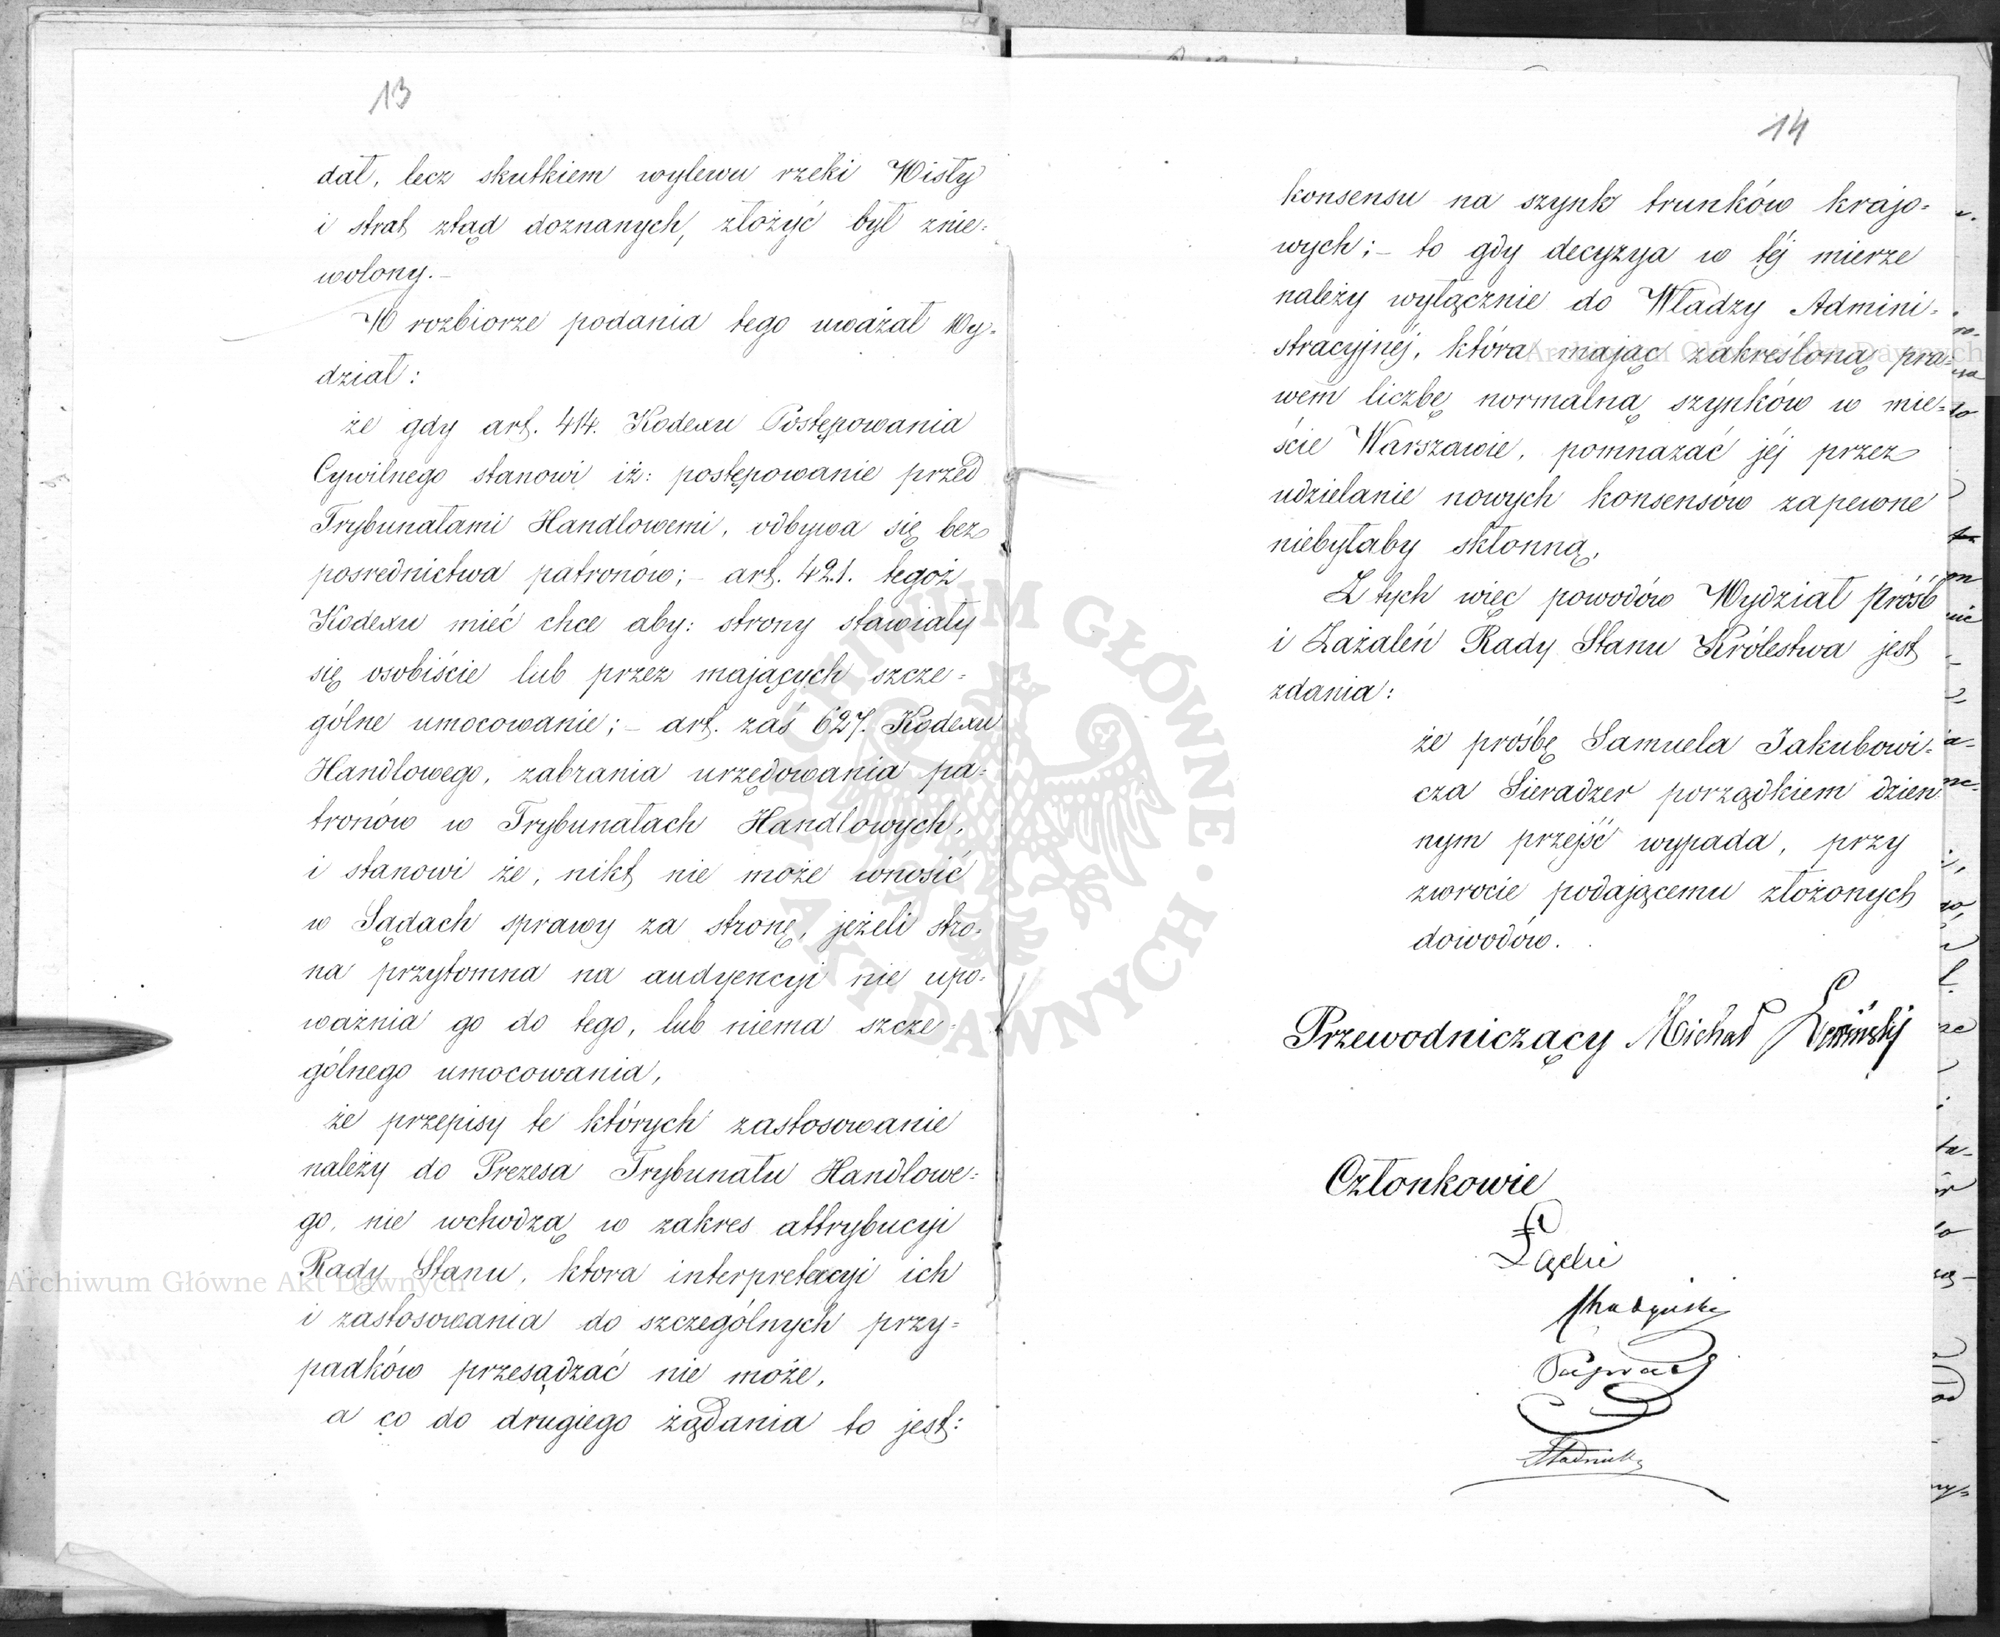 13
dał, lecz skutkiem wylewu rzeki Wisły
i strat ztąd doznanych, złożyć był znie=
wolony.—
W rozbiorze podania tego uważał Wy=
dział:
że gdy art. 414. Kodexu Postępowania
Cywilnego stanowi iż: postępowanie przed
Trybunałami Handlowemi, odbywa się bez
posrednictwa patronów;— art. 421. tegoż
Kodexu mieć chce aby: strony stawiały
się osobiście lub przez mających szcze=
gólne umocowanie;— art. zaś 627. Kodexu
Handlowego, zabrania urzędowania pa=
tronów w Trybunałach Handlowych,
i stanowi że, nikt nie może wnosić
w Sądach sprawy za stronę, jeżeli stro=
na przytomna na audyencyi nie upo=
ważnia go do tego, lub niema szcze=
gólnego umocowania,
że przepisy te których zastosowanie
należy do Prezesa Trybunału Handlowe=
go, nie wchodzą w zakres attrybucyi
Rady Stanu, ktora interpretacyi ich
i zastosowania do szczególnych przy=
padków przesądzać nie może,
a co do drugiego żądania to jest:
14
konsensu na szynk trunków krajo=
wych;— to gdy decyzya w téj mierze
należy wyłącznie do Władzy Admini=
stracyjnéj, która mając zakreśloną pra=
wem liczbę normalną szynków w mie=
ście Warszawie, pomnażać jéj przez
udzielanie nowych konsensów zapewne
niebyłaby skłonną,
Z tych więc powodów Wydział Próśb
i Zażaleń Rady Stanu Królestwa jest
zdania:
że prośbę Samuela Jakubowi=
cza Sieradzer porządkiem dzien
nym przejść wypada, przy
zwrocie podającemu złożonych
dowodów.
Przewodniczący Michał
Członkowie
Łęcki
ARCHIWUM GŁÓWNE AKT DAWNYCH
Archiwum Główne Akt Dawnych
Archiwum Główne Akt Dawnych